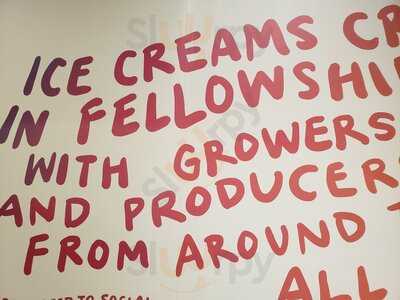 ICE CREAMS CR
IN FELLOWSHI
WITH GROWERS
AND PRODUCERS
FROM AROUND T
ALL
TO SOCIAL